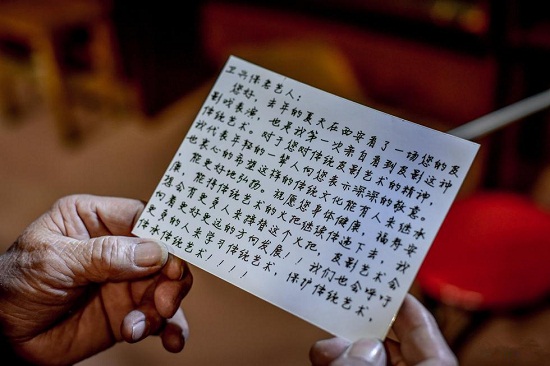 卫兴保老艺人：
您好，去年的夏天在西安看了一场您的皮
影戏表演，也是我第一次亲自看到皮影这种
传统艺术。对于您对传统皮影艺术的精神，
我代表年轻的一辈人向您表示深深的敬意。
也衷心的希望这样的传统文化能有人来继承
能更好地弘扬。祝愿您身体健康、福寿安
康，能将传统艺术的火把继续传递下去，我
想会有更多人来接替这个火把，皮影艺术会
向着更好更远的方向发展！！我们也会呼吁
更多的人来学习传统艺术，保护传统艺术，
传承传统艺术！！！